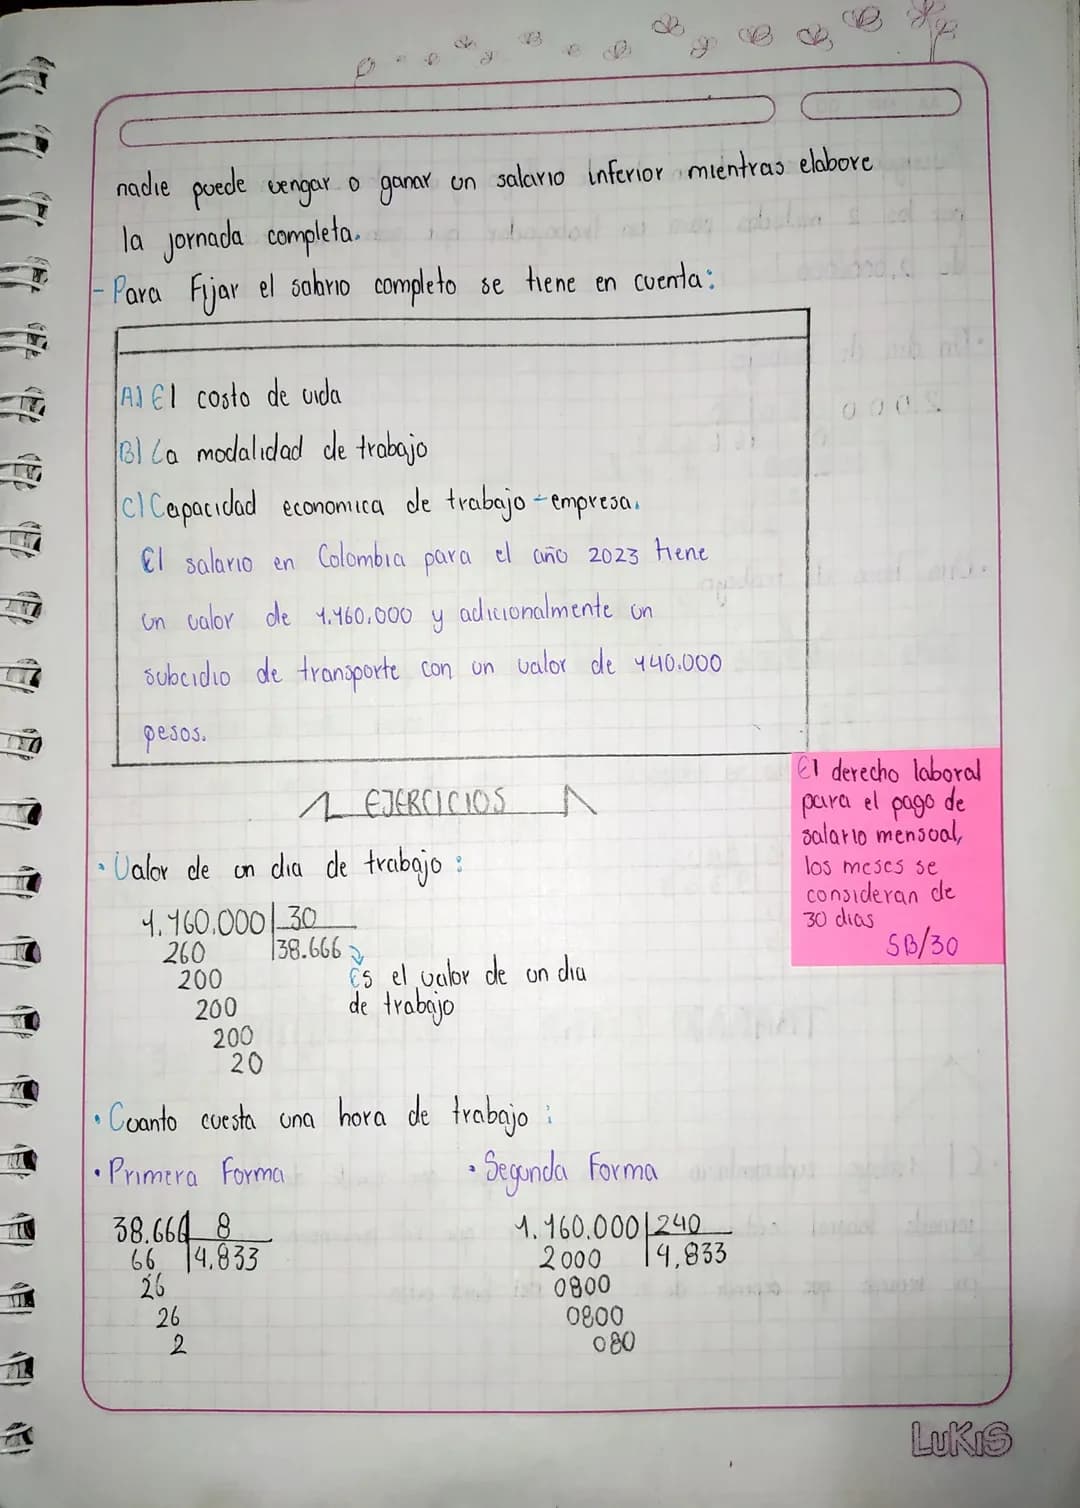 nadie puede vengar o ganar un salario inferior mientras elabore
la jornada completa.
- Para Fijar el salario completo se tiene en cuenta:
A) El costo de vida
B) La modalidad de trabajo
C) Capacidad economica de trabajo - empresa.
El salario en Colombia para el año 2023 tiene
un valor de 1.160.000 y adicionalmente un
subcidio de transporte con un valor de 140.000
pesos.
EJERCICIOS
El derecho laboral
para el pago de
salario mensual,
los meses se
consideran de
30 dias
SB/30
• Valor de un dia de trabajo:
1.160.000 30
260 38.666
200 Es el valor de un dia
200 de trabajo
200
20
• Cuanto cuesta una hora de trabajo:
• Primera Forma • Segunda Forma
38.666 8 1.160.000 240
66 4.833 2000 4,833
26 0800
26 0800
2 080
LUKIS